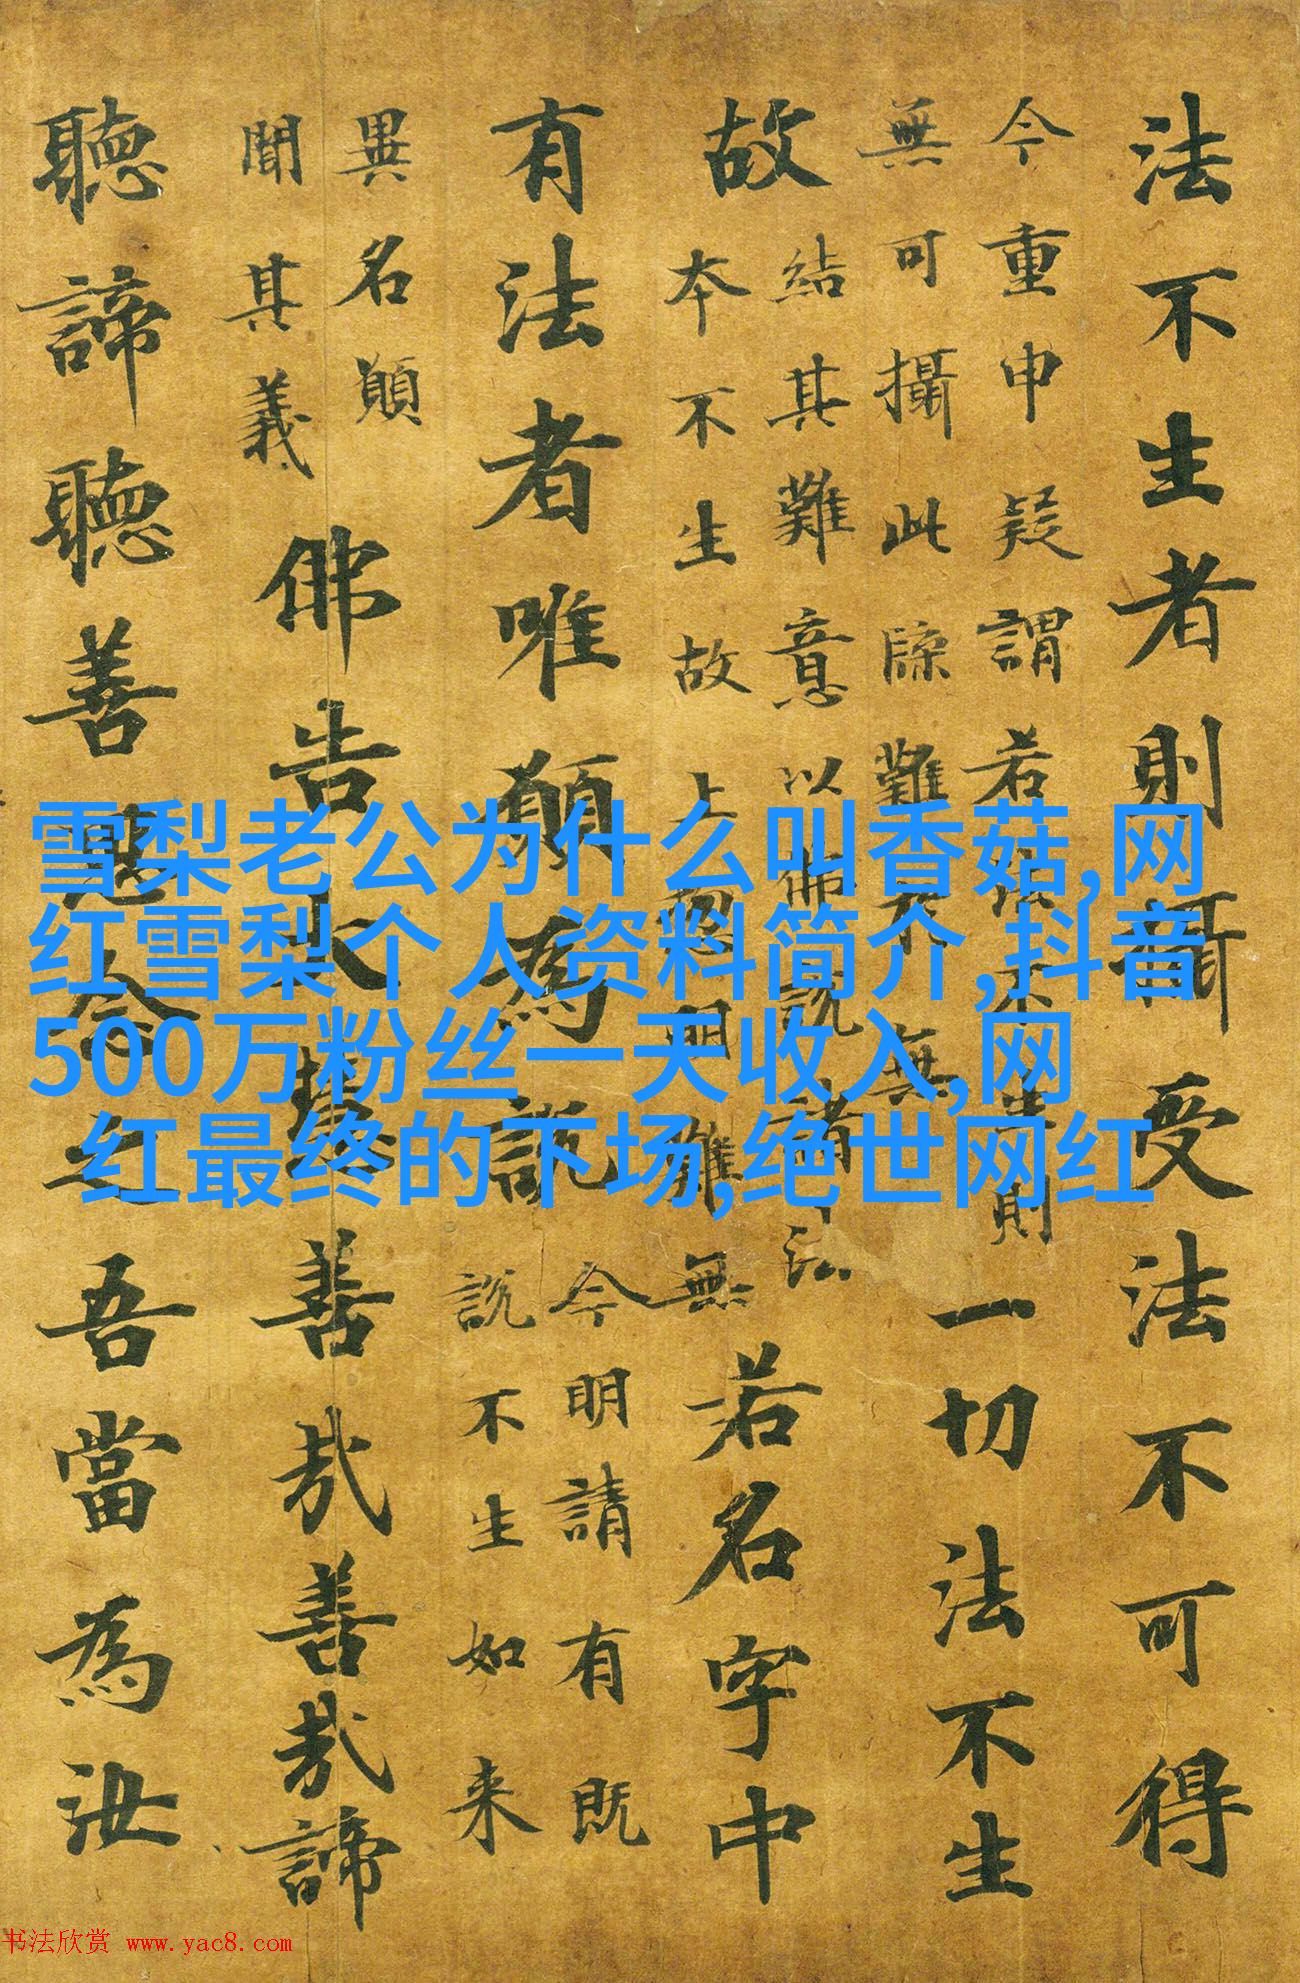 法不生者則受法不可得
今重申疑謂若法不生則
無可攝此牒難無
一切法不生
故
結其難意以佛說諸法
本不生故上明難無
若名字中
有法者唯願為說
今明請有既
說不生如来
異名願
聞其義
佛告大慧善哉善哉諦
聽諦聽善思念之吾當為汝
雪梨老公为什么叫香菇,网
红雪梨个人资料简介,抖音
500万粉丝一天收入,网
红最终的下场,绝世网红
书法欣赏 www.yac8.com